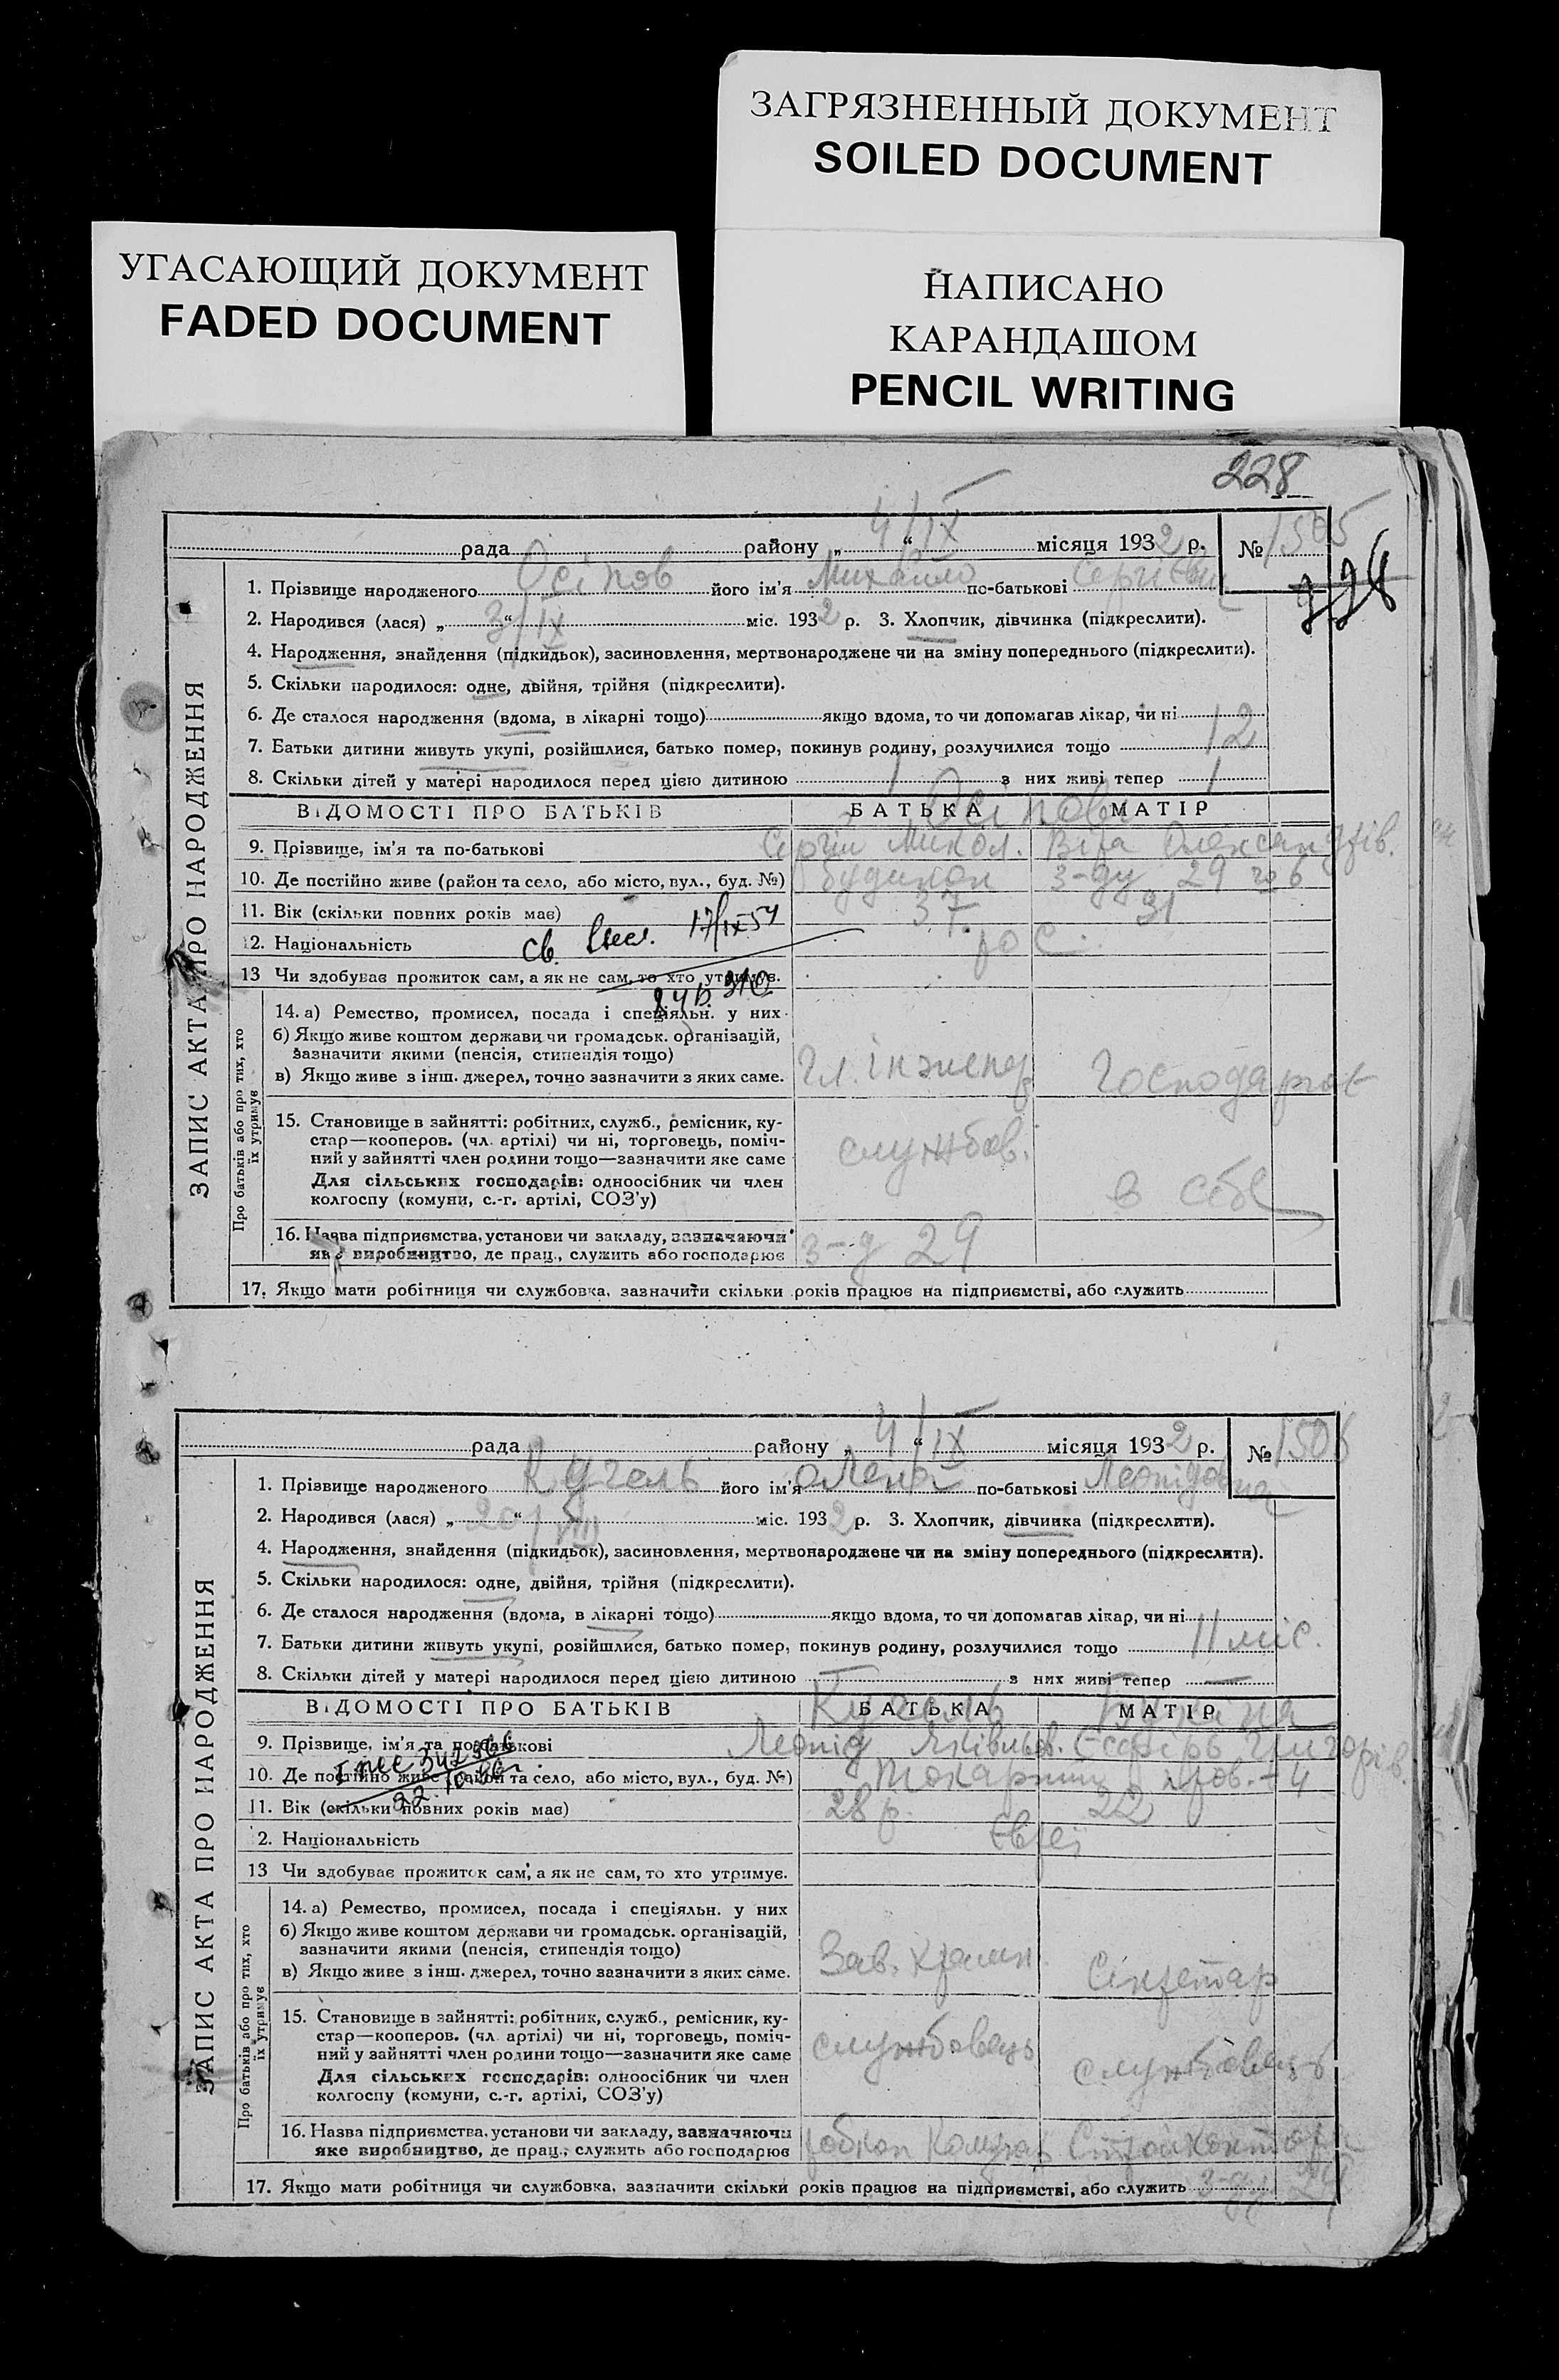 ЗАГРЯЗНЕННЫЙ ДОКУМЕНТ
SOILED DOCUMENT
УГАСАЮЩИЙ ДОКУМЕНТ
FADED DOCUMENT
НАПИСАНО
КАРАНДАШОМ
PENCIL WRITING
228
рада району „ 4/IX “ місяця 1932 р. № 1505
228
ЗАПИС АКТА ПРО НАРОДЖЕННЯ
1. Прізвище народженого Осіпов його ім'я Михайло по-батькові Сергієвич
2. Народився (лася) „ 3/IX “ міс. 1932 р. 3. Хлопчик, дівчинка (підкреслити).
4. Народження, знайдення (підкидьок), засиновлення, мертвонароджене чи на зміну попереднього (підкреслити).
5. Скільки народилося: одне, двійня, трійня (підкреслити).
6. Де сталося народження (вдома, в лікарні тощо) якщо вдома, то чи допомагав лікар, чи ні
7. Батьки дитини живуть укупі, розійшлися, батько помер, покинув родину, розлучилися тощо 12
8. Скільки дітей у матері народилося перед цією дитиною 1 з них живі тепер 1
ВІДОМОСТІ ПРО БАТЬКІВ БАТЬКА МАТІР
Осіпов
9. Прізвище, ім'я та по-батькові Сергій Микол. Віра Олександрів.
10. Де постійно живе (район та село, або місто, вул., буд. №) будинок з-ду 29 6
11. Вік (скільки повних років має) 37 31
12. Національність рос.
Св. 17/IX 54
13 Чи здобуває прожиток сам, а як не сам, то хто утримує.
Про батьків або про тих, хто їх утримує
14. а) Ремество, промисел, посада і спеціяльн. у них
б) Якщо живе коштом держави чи громадськ. організацій,
зазначити якими (пенсія, стипендія тощо)
в) Якщо живе з інш. джерел, точно зазначити з яких саме. Гл. інженер
15. Становище в зайнятті: робітник, служб., ремісник, ку-
стар—кооперов. (чл. артілі) чи ні, торговець, поміч-
ний у зайнятті член родини тощо—зазначити яке саме службов.
Для сільських господарів: одноосібник чи член
колгоспу (комуни, с.-г. артілі, СОЗ'у) в себе
16. Назва підприємства, установи чи закладу, зазначаючи
яке виробництво, де прац., служить або господарює з-д 29
17. Якщо мати робітниця чи службовка, зазначити скільки років працює на підприємстві, або служить
рада району „ 4/IX “ місяця 1932 р. № 1506
ЗАПИС АКТА ПРО НАРОДЖЕННЯ
1. Прізвище народженого його ім'я по-батькові Леонідовна
2. Народився (лася) „ 20/VIII “ міс. 1932 р. 3. Хлопчик, дівчинка (підкреслити).
4. Народження, знайдення (підкидьок), засиновлення, мертвонароджене чи на зміну попереднього (підкреслити).
5. Скільки народилося: одне, двійня, трійня (підкреслити).
6. Де сталося народження (вдома, в лікарні тощо) якщо вдома, то чи допомагав лікар, чи ні
7. Батьки дитини живуть укупі, розійшлися, батько помер, покинув родину, розлучилися тощо 11 міс.
8. Скільки дітей у матері народилося перед цією дитиною — з них живі тепер —
ВІДОМОСТІ ПРО БАТЬКІВ БАТЬКА МАТІР
9. Прізвище, ім'я та по-батькові Леонід Яківльов. Григорів.
10. Де постійно живе (район та село, або місто, вул., буд. №) пров. - 4
11. Вік (скільки повних років має) 28 р. 22
12. Національність Євреї
13 Чи здобуває прожиток сам, а як не сам, то хто утримує.
Про батьків або про тих, хто їх утримує
14. а) Ремество, промисел, посада і спеціяльн. у них
б) Якщо живе коштом держави чи громадськ. організацій,
зазначити якими (пенсія, стипендія тощо)
в) Якщо живе з інш. джерел, точно зазначити з яких саме. Зав. Секретар
15. Становище в зайнятті: робітник, служб., ремісник, ку-
стар—кооперов. (чл. артілі) чи ні, торговець, поміч-
ний у зайнятті член родини тощо—зазначити яке саме службовець службовець
Для сільських господарів: одноосібник чи член
колгоспу (комуни, с.-г. артілі, СОЗ'у)
16. Назва підприємства, установи чи закладу, зазначаючи
яке виробництво, де прац., служить або господарює
17. Якщо мати робітниця чи службовка, зазначити скільки років працює на підприємстві, або служить з-ду 29